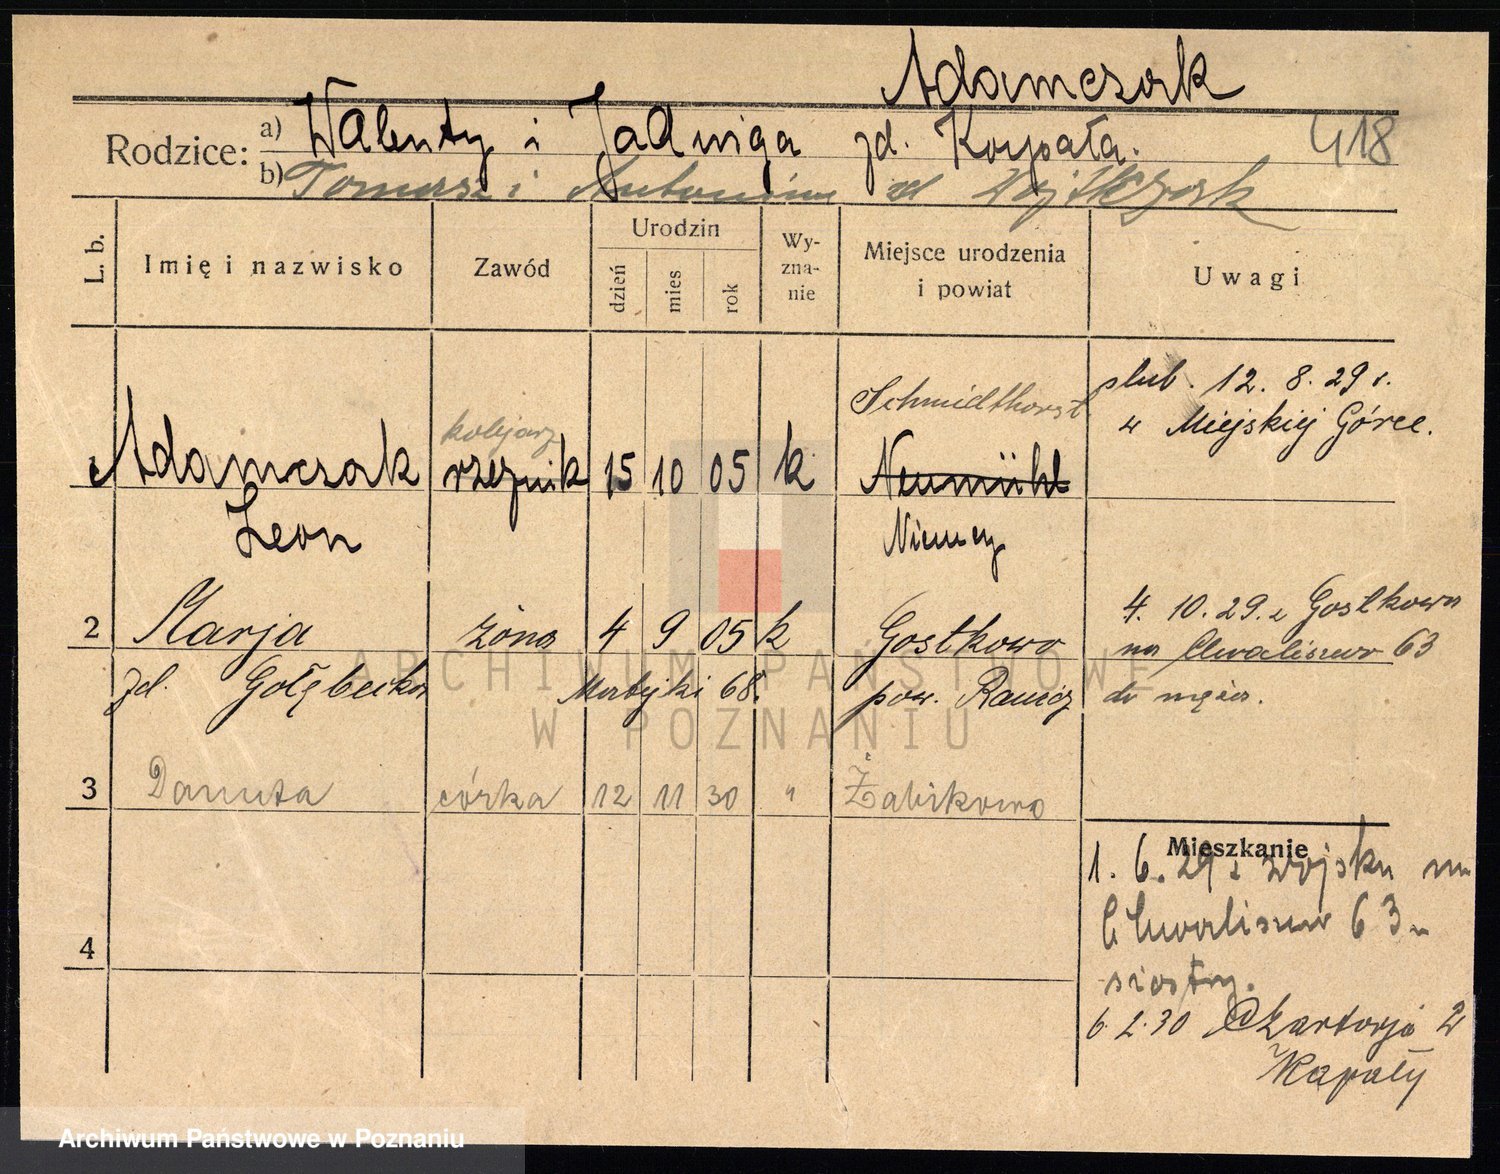 Adamczak
Rodzice: a) Walenty i Jadwiga zd. Korpała. 418
b) Tomasz i Antonina zd Wojtkczak
L. b. Imię i nazwisko Zawód Urodzin dzień mies rok Wyznanie Miejsce urodzenia i powiat Uwagi
Schmidthorst ślub. 12. 8. 29 r.
kolejarz w Miejskiej Górce.
1 Adamczak rzeźnik 15 10 05 k Neumühl
Leon Niemcy
2 Marja żona 4 9 05 k Gostkowo 4. 10. 29. z Gostkowa
na Chwaliszewo 63
zd. Gołębecka Matejki 68. pow. Rawicz do męża.
3 Danuta córka 12 11 30 " Żabikowo
Mieszkanie
1. 6. 29 z wojska na
4 Chwaliszewo 63 u
siostry.
6 2. 30 Czartorja 2
Kapały
ARCHIWUM PAŃSTWOWE
W POZNANIU
Archiwum Państwowe w Poznaniu